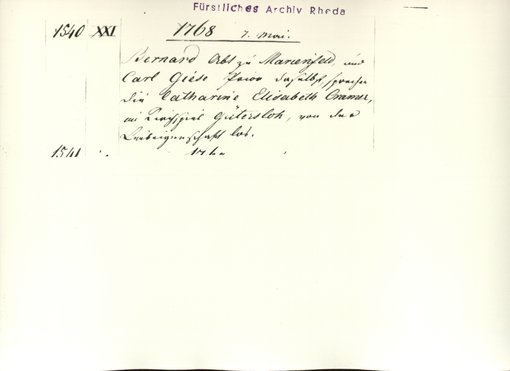 Fürstliches Archiv Rheda
1540 XXI 1768 7. Mai.
Bernard Abt zu Marienfeld und
Carl Giese Prior daselbst, sprechen
die Catharine Elisabeth Cramer,
im Kirchspiel Gütersloh, von der
Leibeigenschaft los.
1541